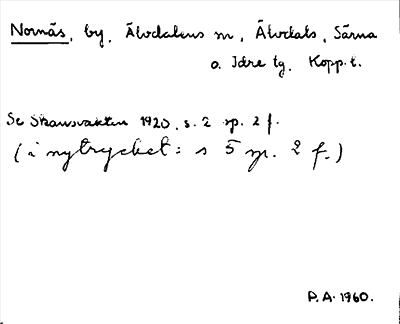 Nornäs, by. Älvdalens m, Älvdals, Särna
o. Idre tg. Kopp. l.
Se Skansvakten 1920. s. 2 sp. 2 f.
(i nytrycket: s 5 sp. 2 f.)
P.A. 1960.